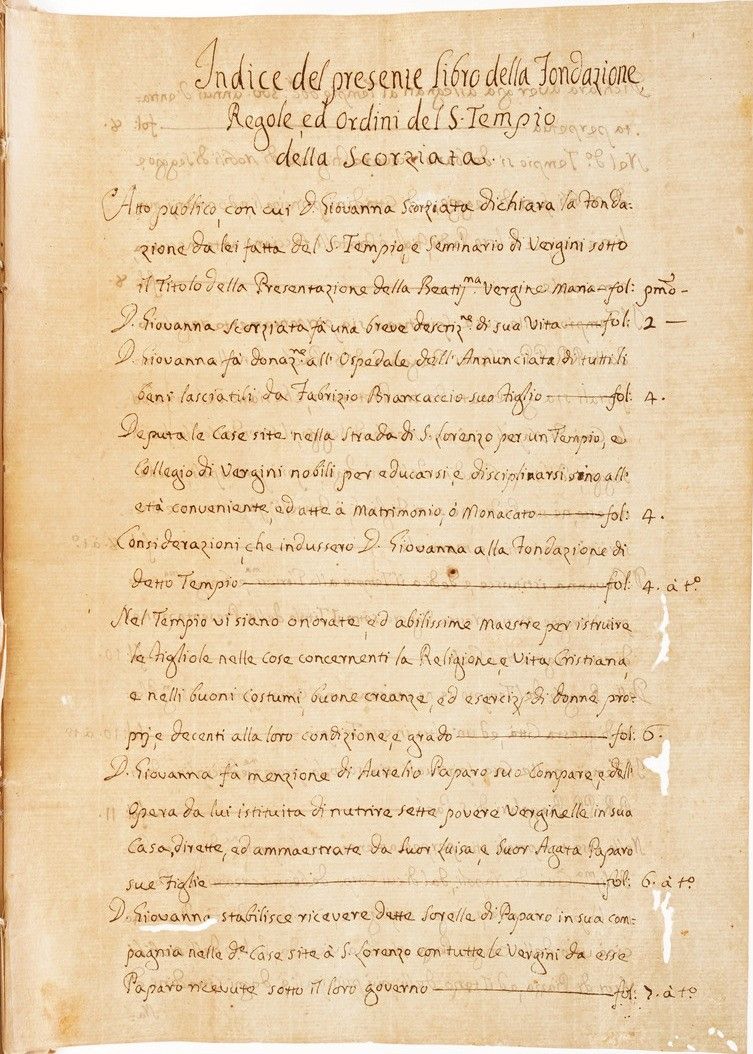 Indice del presente libro della Fondazione,
Regole, ed Ordini del S. Tempio
della Scorziata.
Atto publico, con cui D. Giovanna Scorziata dichiara la fonda:
zione da lei fatta del S. Tempio, e Seminario di Vergini sotto
il Titolo della Presentazione della Beatis.ma Vergine Maria fol: pmõ
D. Giovanna Scorziata fà una breve descriz.ne di sua Vita fol: 2
D. Giovanna fà donaz.ne all' Ospedale dell' Annunciata di tutti li
beni lasciatili da Fabrizio Brancaccio suo Figlio fol: 4.
Deputa le Case site nella Strada di S. Lorenzo per un Tempio, e
Collegio di Vergini nobili per educarsi, e disciplinarsi sino all'
età conveniente, ed atte à Matrimonio, ó Monacato fol: 4.
Considerazioni, che indussero D. Giovanna alla Fondazione di
detto Tempio fol: 4. à t.o
Nel Tempio vi siano onorate, ed abilissime Maestre per istruire
le Figliole nelle Cose concernenti la Religione, e Vita Cristiana,
e nelli buoni Costumi, buone creanze, ed esercizj di donne pro:
prj, e decenti alla loro condizione, e grado fol: 6.
D. Giovanna fà menzione di Aurelio Paparo suo Compare, e dell'
Opera da lui istituita di nutrire sette povere Verginelle in sua
Casa, dirette, ed ammaestrate da Suor Luisa, e Suor Agata Paparo
sue Figlie fol: 6. à t.o
D. Giovanna stabilisce ricevere dette Sorelle di Paparo in sua com:
pagnia nelle d.e Case site à S. Lorenzo con tutte le Vergini da esse
Paparo ricevute sotto il loro governo fol: 7. à t.o